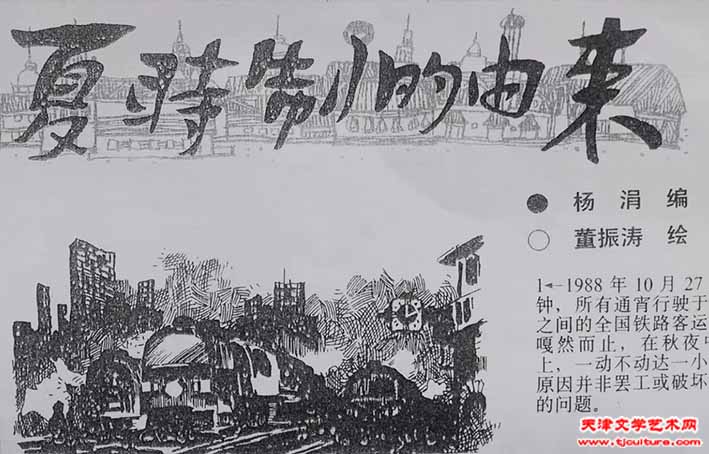 夏时制的由来
● 杨 涓 编
○ 董振涛 绘
1◄—1988 年 10 月 27
钟，所有通宵行驶于
之间的全国铁路客运
嘎然而止，在秋夜中
上，一动不动达一小
原因并非罢工或破坏
的问题。
天津文学艺术网
www.tjculture.com